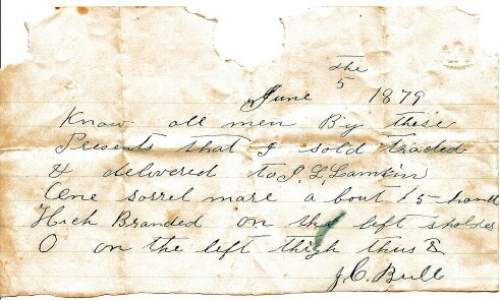 the
June 5 1879
Know all men By these
Presents that I sold traded
& delivered to S. L. Lamkin
One sorrel mare a bout 15 hands
Hich Branded on the left sholder
O on the left thigh thus &
J. C. Bull